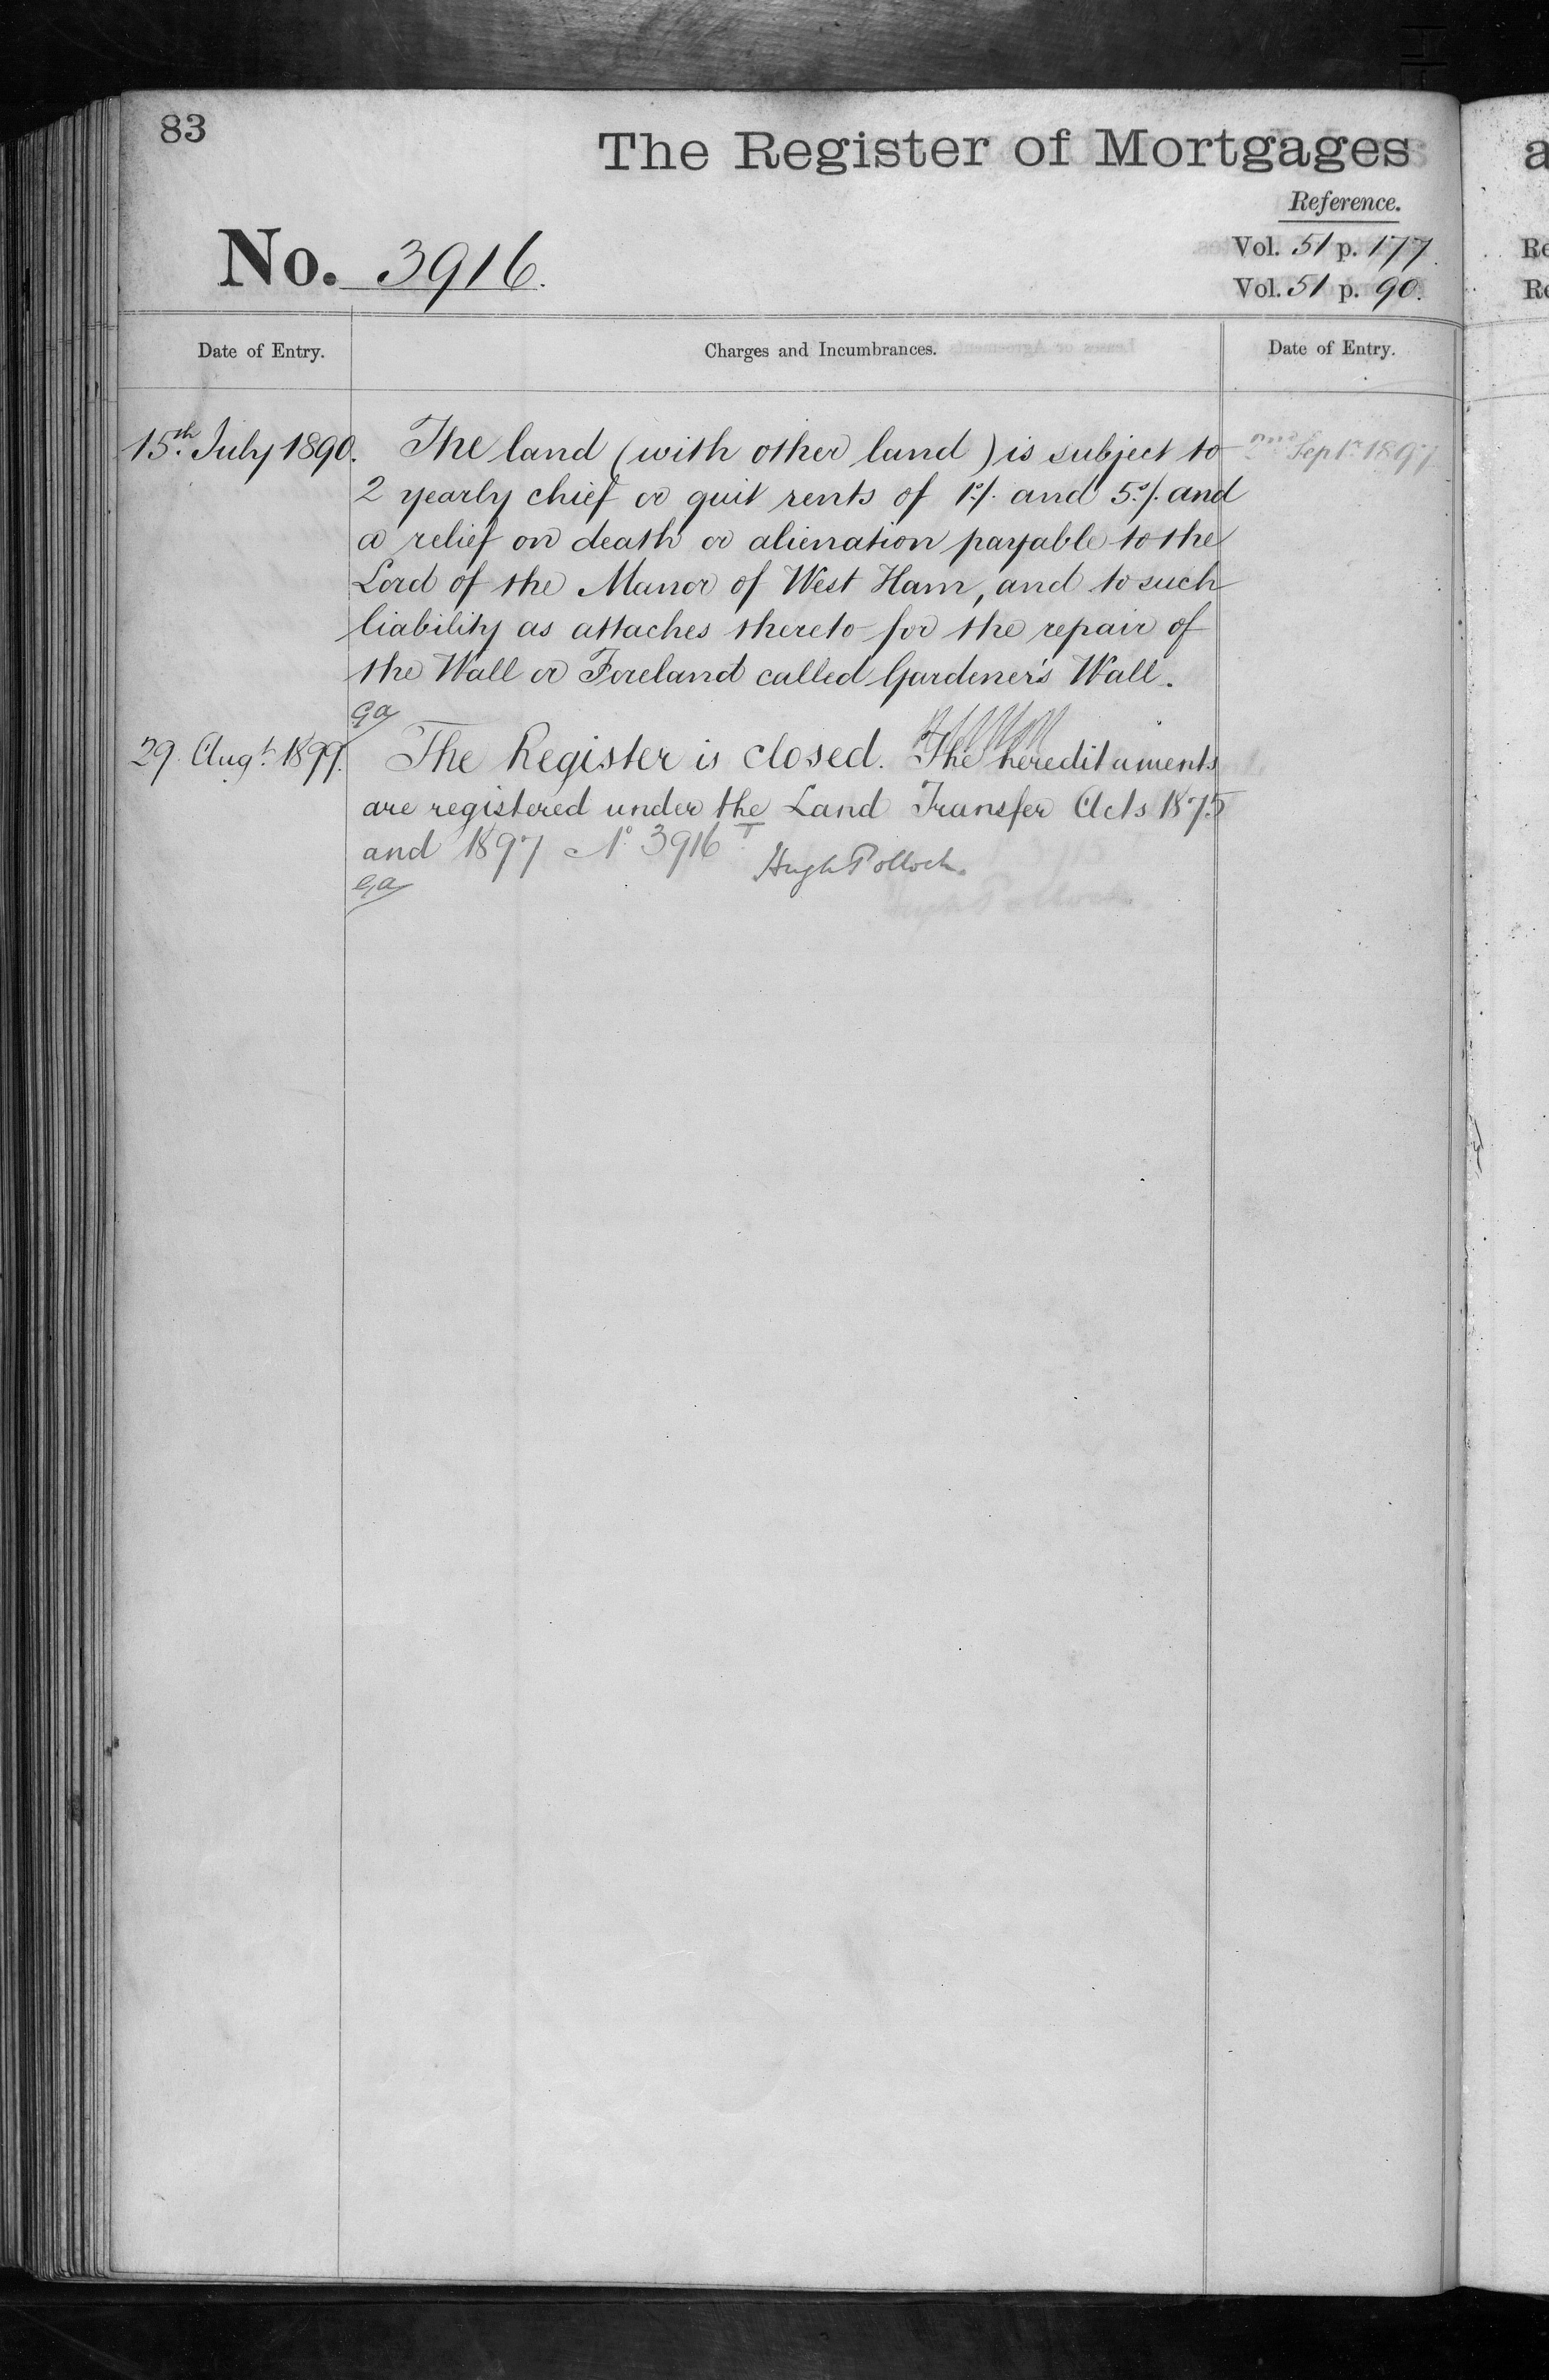 83
The Register of Mortgages
Reference.
No. 3916.
Vol. 51 p. 177.
Vol. 51 p. 90.
Date of Entry.
Charges and Incumbrances.
Date of Entry.
15th July 1890. The land (with other land) is subject to
2 yearly chief or quit rents of 1s/. and 5s/. and
a relief on death or alienation payable to the
Lord of the Manor of West Ham, and to such
liability as attaches thereto for the repair of
the Wall or Foreland called Gardener's Wall.
GA
29 Augt. 1899. The Register is closed. The hereditaments
are registered under the Land Transfer Acts 1875
and 1897 No 3916T
Hugh Pollock.
GA
Sept. 1897
a
Re
Re